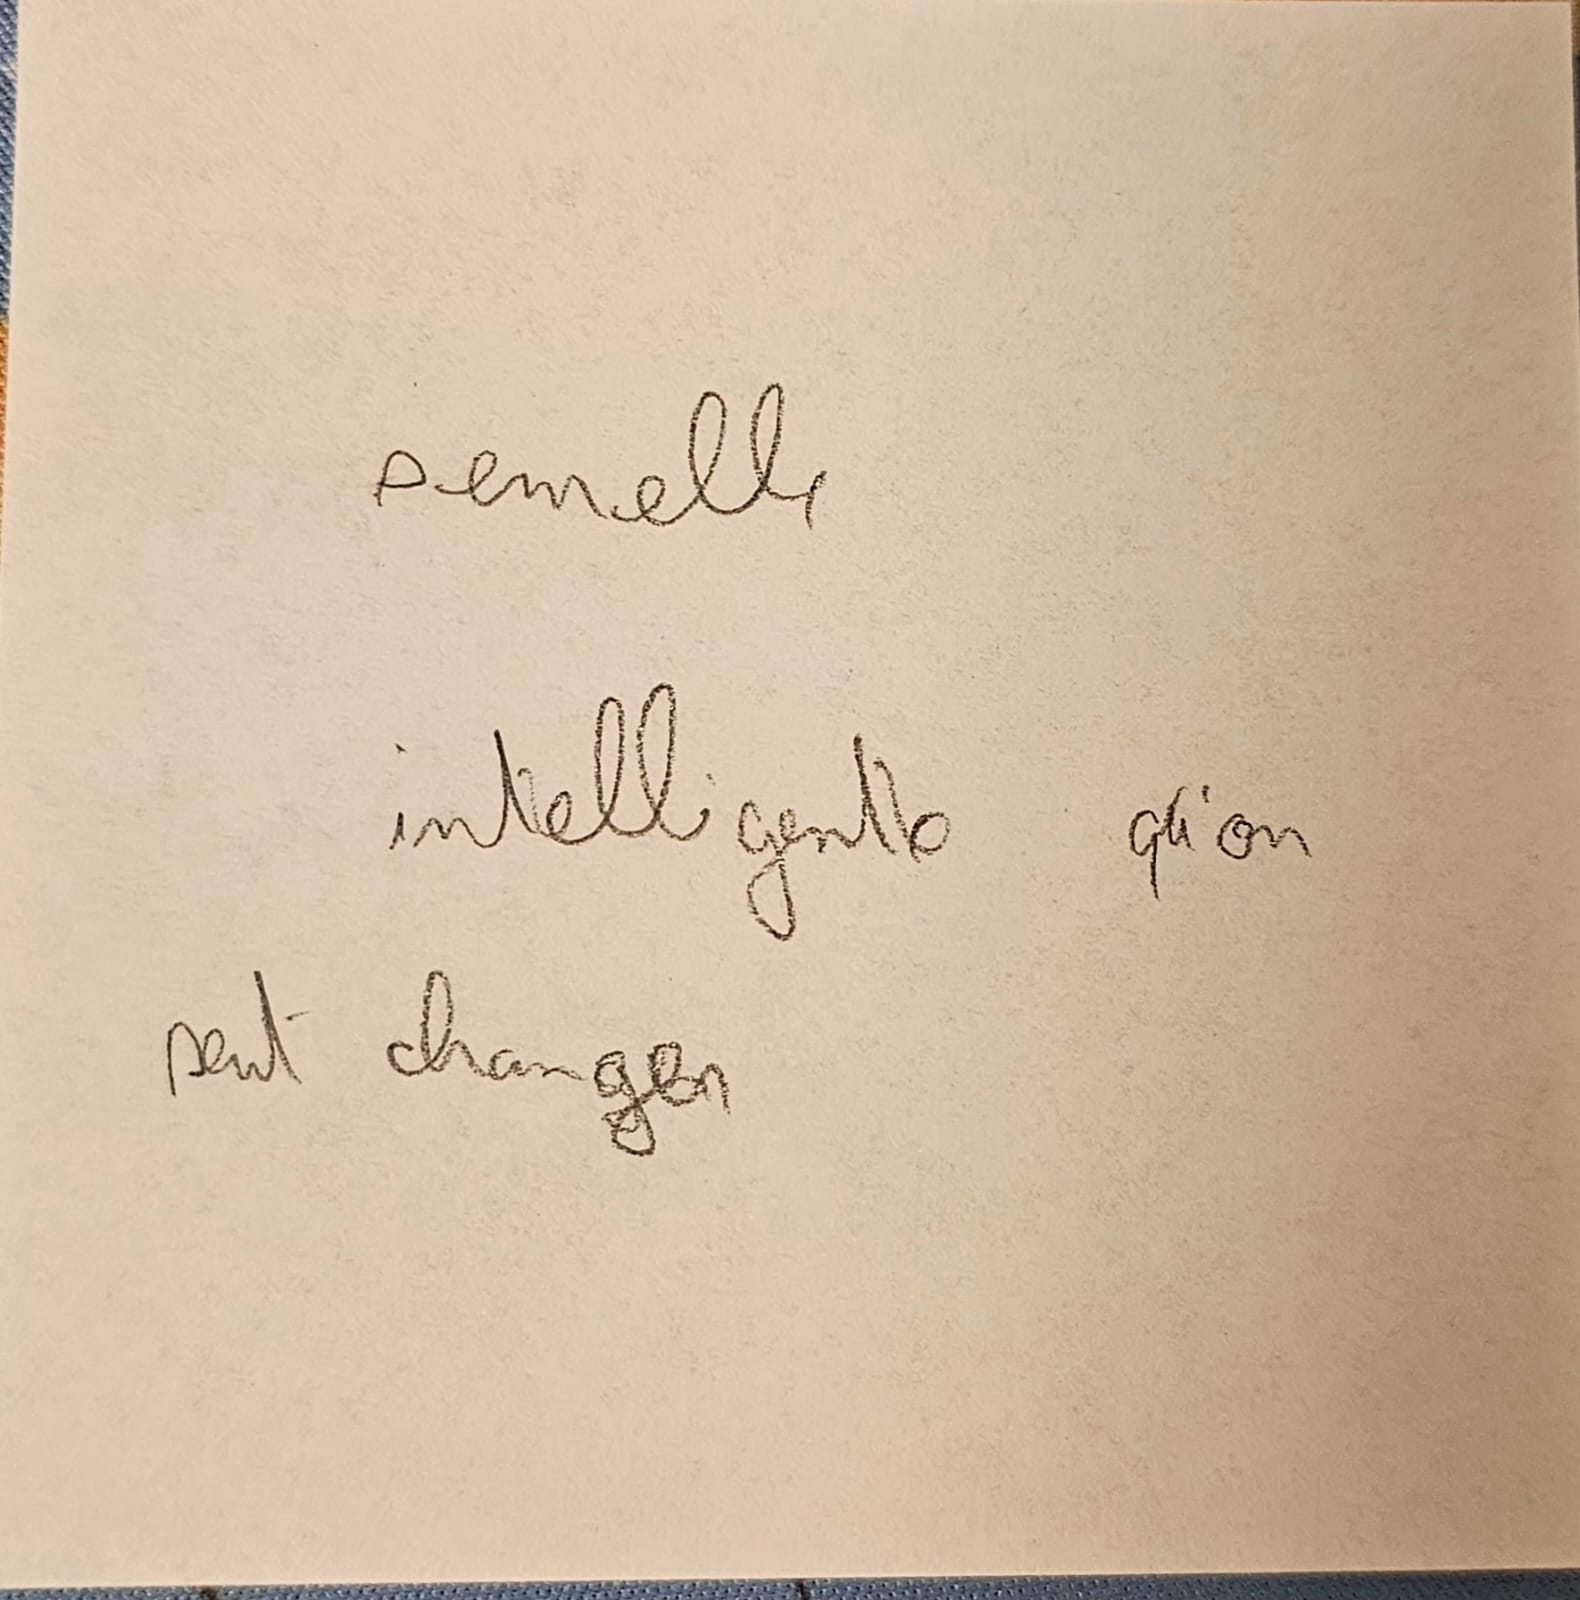 semelle
intelligente qu'on
sent changer